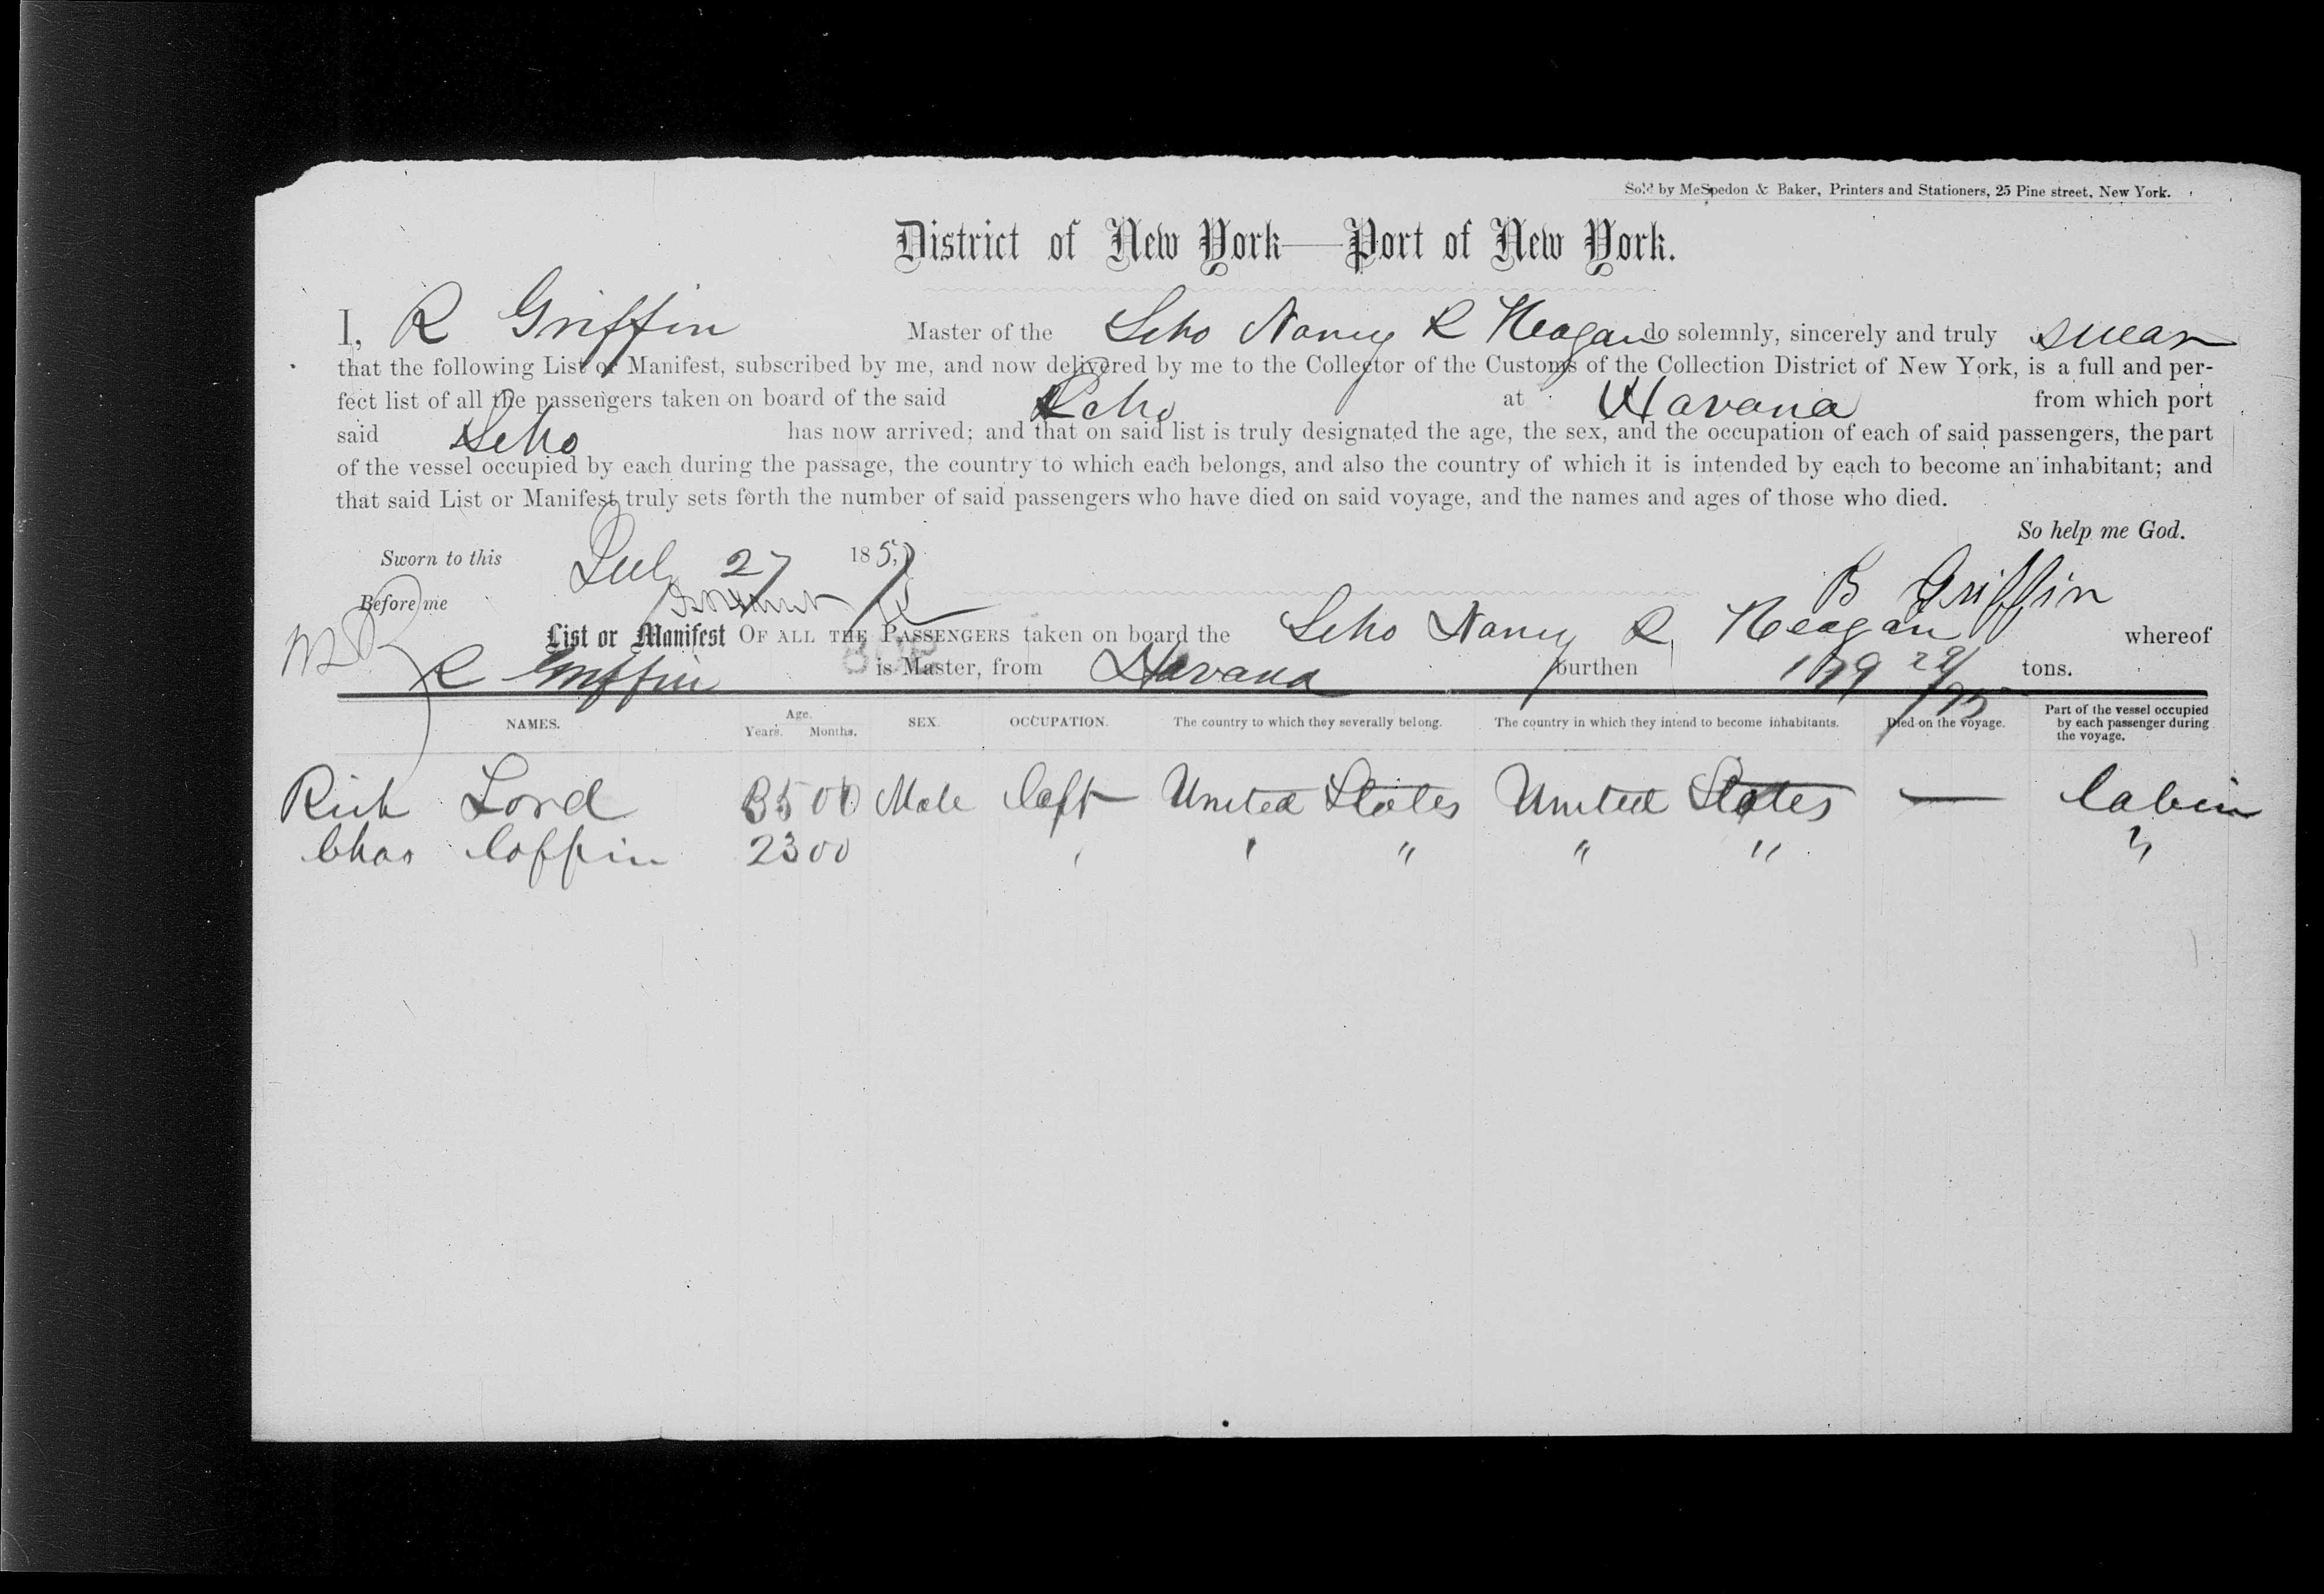 Sold by McSpedon & Baker, Printers and Stationers, 25 Pine street, New York.
District of New York—Port of New York.
I, R Griffin Master of the Scho Nancy R Heagan do solemnly, sincerely and truly swear
that the following List or Manifest, subscribed by me, and now delivered by me to the Collector of the Customs of the Collection District of New York, is a full and per-
fect list of all the passengers taken on board of the said Scho at Havana from which port
said Scho has now arrived; and that on said list is truly designated the age, the sex, and the occupation of each of said passengers, the part
of the vessel occupied by each during the passage, the country to which each belongs, and also the country of which it is intended by each to become an inhabitant; and
that said List or Manifest truly sets forth the number of said passengers who have died on said voyage, and the names and ages of those who died.
So help me God.
Sworn to this July 27 185
Before me
R Griffin
List or Manifest OF ALL THE PASSENGERS taken on board the Scho Nancy R Heagan whereof
R Griffin is Master, from Havana burthen 179 29/95 tons.
NAMES. Age. Years. Months. SEX. OCCUPATION. The country to which they severally belong. The country in which they intend to become inhabitants. Died on the voyage. Part of the vessel occupied by each passenger during the voyage.
Rich Lord 35 00 Male Capt United States United States — Cabin
Chas Coffin 23 00 " " " " "